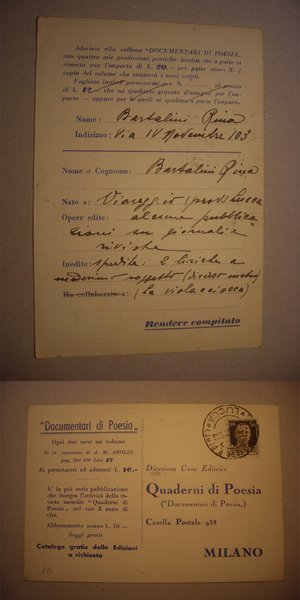 Aderisco alla collana "DOCUMENTARI DI POESIA,
con quattro mie produzioni poetiche inedite che a parte vi
rimetto con l'importo di L. 20.- per poter avere N. 2
copie del volume che conterrà i miei scritti.
Vogliate inoltre prenotarmi per N. al prezzo
di L. 12.- che mi spedirete gravate d'assegno per l'im-
porto — eppure per le quali vi spedisco a parte l'importo.
Nome: Bartalini Rina
Indirizzo: Via IV Novembre 103
Nome e Cognome: Bartalini Rina
Nato a: Viareggio (prov. Lucca
Opere edite: alcune pubblica
zioni su giornali e
riviste
Inedite: spedite: 2 liriche a
medesimo soggetto (diverso metro)
Ha collaborato a: (La violacciocca)
Rendere compilato
"Documentari di Poesia„
Ogni due mesi un volume
In 16 consertino di A. M. AROLDI
pag. 280-300 Lire 12
Ai prenotatori ed aderenti L. 10.-
E' la più seria pubblicazione
che integra l'attività della ri-
vista mensile "Quaderni di
Poesia„ nel suo X anno di
vita.
Abbonamento annuo L. 10 —
Saggi gratis
Catalogo gratis delle Edizioni
a richiesta
Direzione Casa Editrice
Quaderni di Poesia
("Documentari di Poesia„)
Casella Postale 938
MILANO
LUCCA